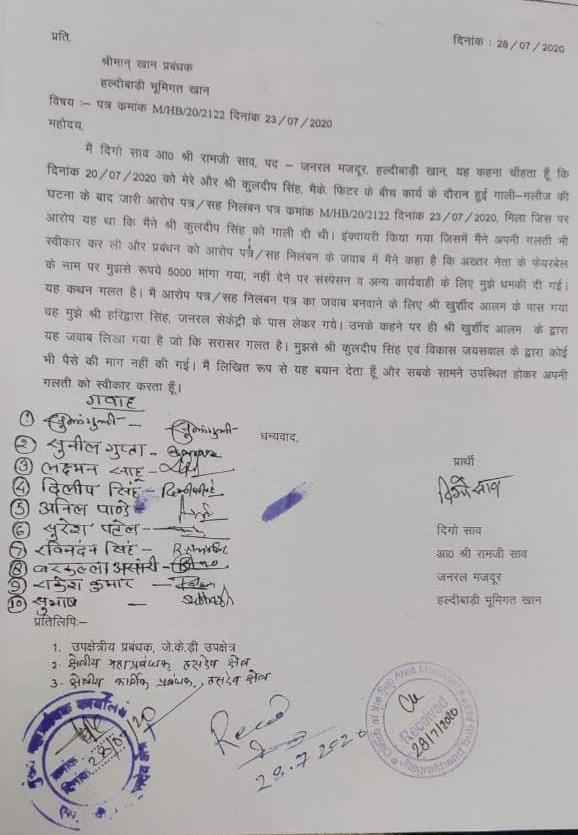 प्रति,
दिनांक : 28/07/2020
श्रीमान् खान प्रबंधक
हल्दीबाड़ी भूमिगत खान
विषय :– पत्र कमांक M/HB/20/2122 दिनांक 23/07/2020
महोदय,
मैं दिगो साव आ0 श्री रामजी साव, पद – जनरल मजदूर, हल्दीबाड़ी खान, यह कहना चाँहता हूँ कि
दिनांक 20/07/2020 को मेरे और श्री कुलदीप सिंह, मैके. फिटर के बीच कार्य के दौरान हुई गाली–गलौज की
घटना के बाद जारी आरोप पत्र/सह निलंबन पत्र कमांक M/HB/20/2122 दिनांक 23/07/2020, मिला जिस पर
आरोप यह था कि मैंने श्री कुलदीप सिंह को गाली दी थी। इंक्वायरी किया गया जिसमें मैंने अपनी गलती भी
स्वीकार कर ली और प्रबंधन को आरोप पत्र/सह निलंबन के जवाब में मैंने कहा है कि अख्तर नेता के फेयरबेल
के नाम पर मुझसे रूपये 5000 मांगा गया, नहीं देने पर संस्पेसन व अन्य कार्यवाही के लिए मुझे धमकी दी गई।
यह कथन गलत है। मैं आरोप पत्र/सह निलंबन पत्र का जवाब बनवाने के लिए श्री खुर्शीद आलम के पास गया
वह मुझे श्री हरिद्वारा सिंह, जनरल सेकेट्री के पास लेकर गये। उनके कहने पर ही श्री खुर्शीद आलम के द्वारा
यह जवाब लिखा गया है जो कि सरासर गलत है। मुझसे श्री कुलदीप सिंह एवं विकास जयसवाल के द्वारा कोई
भी पैसे की मांग नहीं की गई। मैं लिखित रूप से यह बयान देता हूँ और सबके सामने उपस्थित होकर अपनी
गलती को स्वीकार करता हूँ।
गवाह
①
② सुनील गुप्ता –
धन्यवाद,
③ लक्ष्मन साहू –
प्रार्थी
④ दिलीप सिंह –
दिगो साव
⑤ अनिल पाण्डे
⑥ सुरेश पटेल –
दिगो साव
⑦ रविनंदन सिंह –
आ0 श्री रामजी साव
⑧ बरकतुल्ला अंसारी –
जनरल मजदूर
⑨ राकेश कुमार –
हल्दीबाड़ी भूमिगत खान
⑩ सुभाष – Subhash
प्रतिलिपि:–
1. उपक्षेत्रीय प्रबंधक, जे.के.डी उपक्षेत्र
2. क्षेत्रीय महाप्रबंधक, हसदेव क्षेत्र
3. क्षेत्रीय कार्मिक प्रबंधक, हसदेव क्षेत्र
दिनांक 28/07/20
Recd
28.7.2020
Office of the Sub Area Manager
Received
28/7/2020